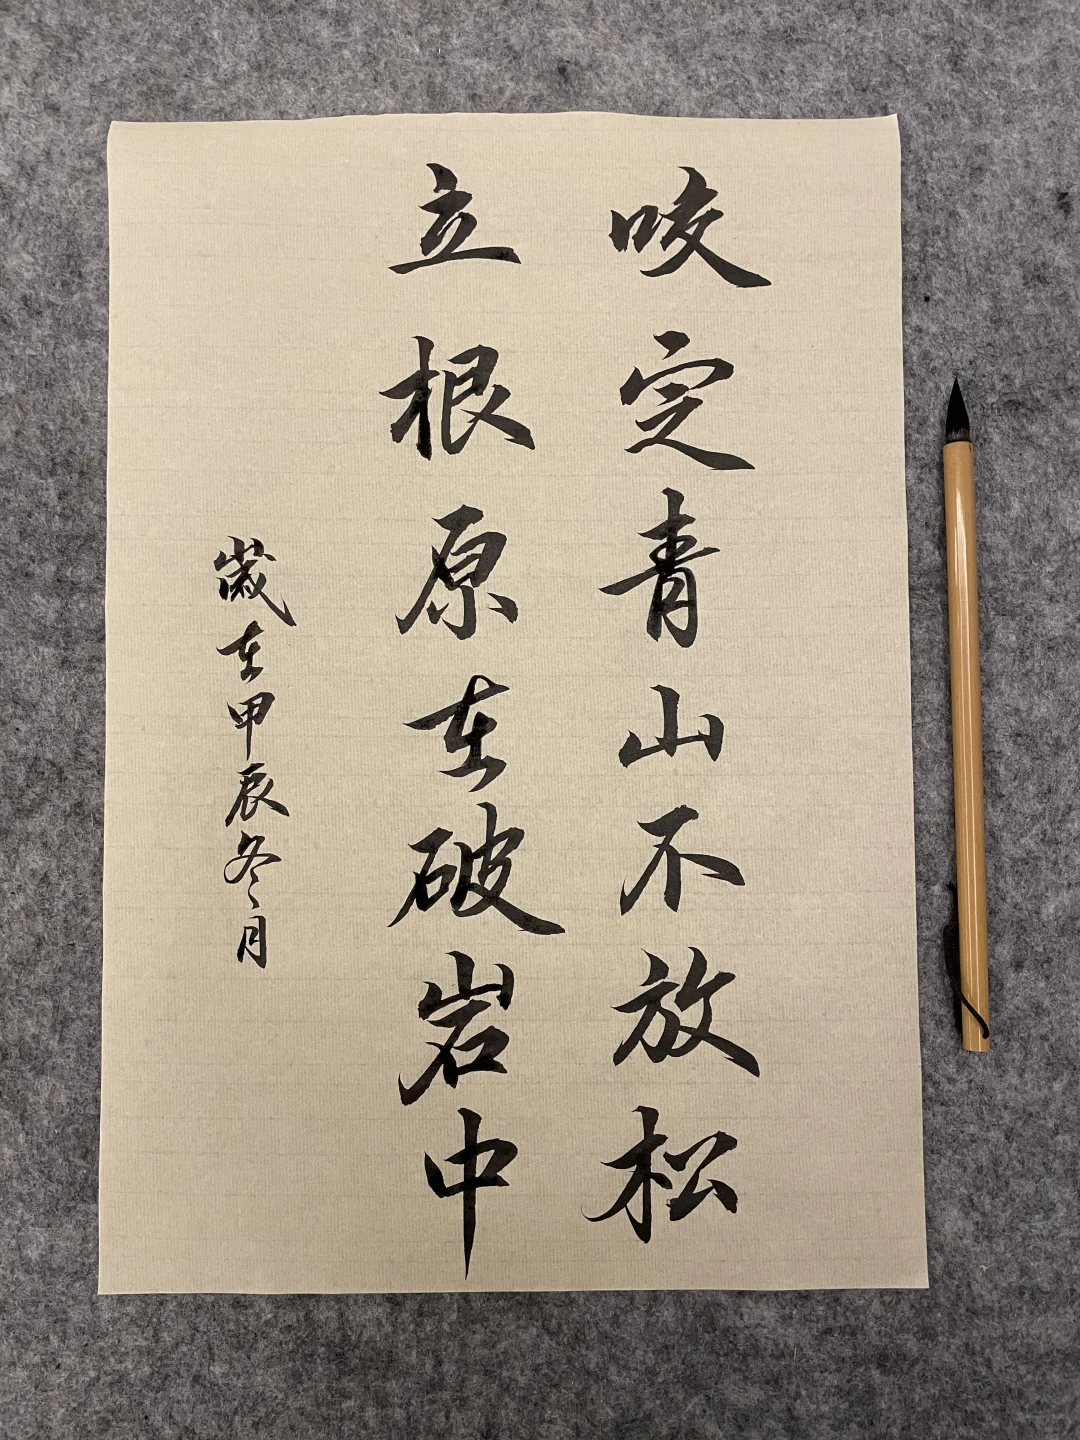 咬定青山不放松
立根原在破岩中
歲在甲辰冬月